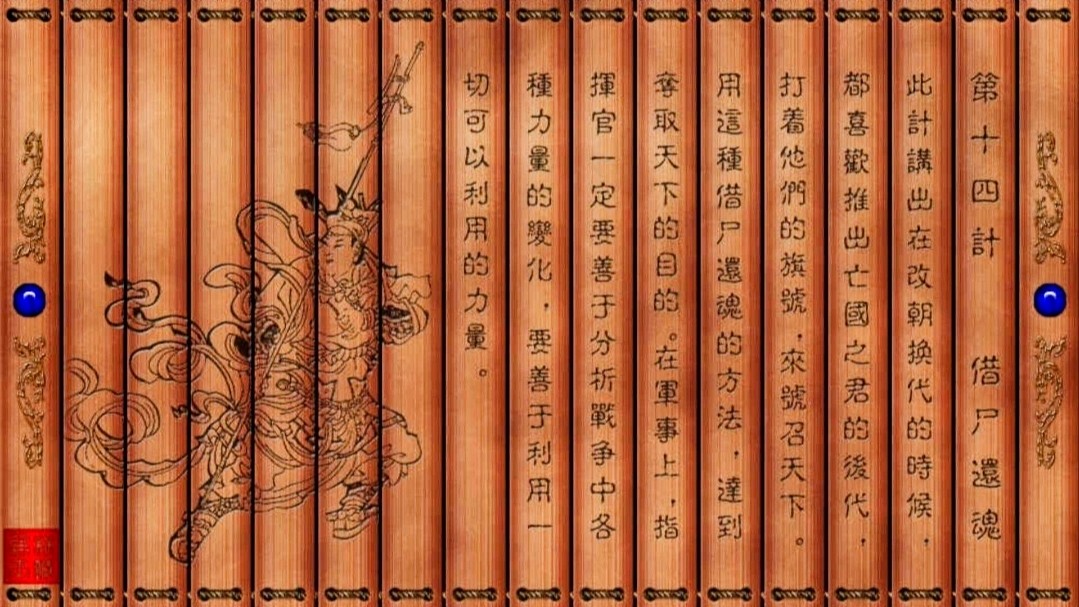 第十四計 借尸還魂
此計講出在改朝換代的時候，
都喜歡推出亡國之君的後代，
打着他們的旗號，來號召天下。
用這種借尸還魂的方法，達到
奪取天下的目的。在軍事上，指
揮官一定要善于分析戰争中各
種力量的變化，要善于利用一
切可以利用的力量。